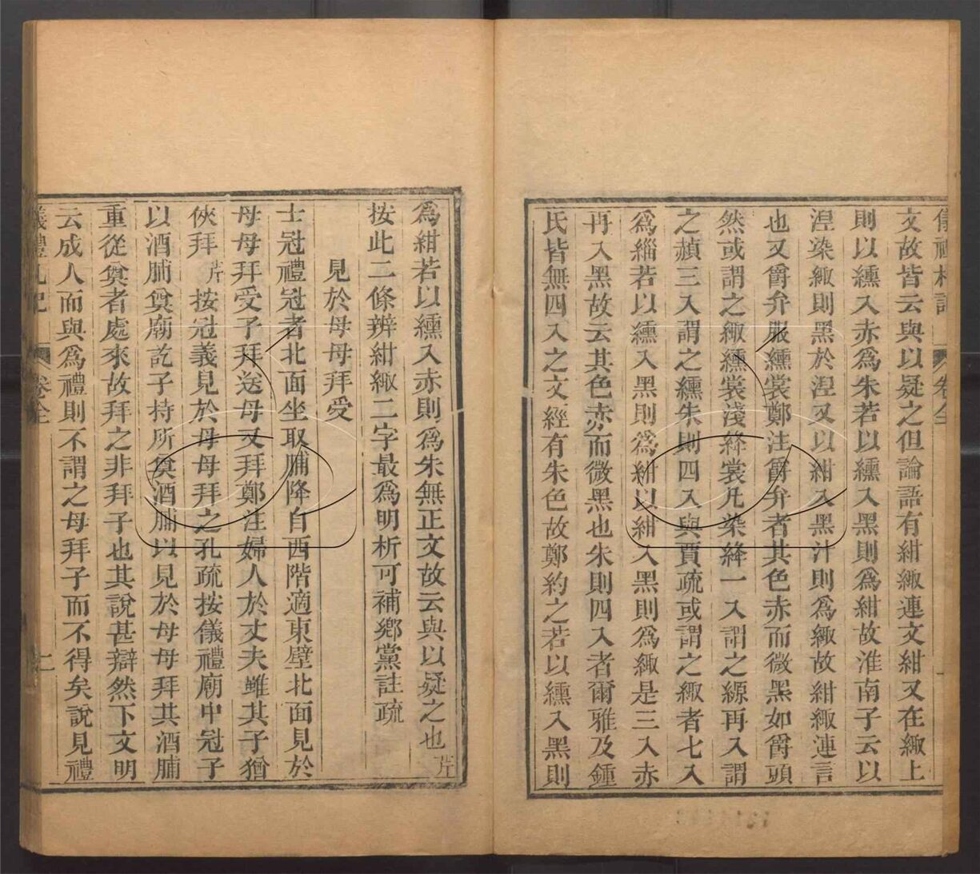 文故皆云與以疑之但論語有紺緅連文紺又在緅上
則以纁入赤為朱若以纁入黑則為紺故淮南子云以
涅染緅則黑於涅又以紺入黑汁則為緅故紺緅連言
也又爵弁服纁裳鄭注爵弁者其色赤而微黑如爵頭
然或謂之緅纁裳淺絳裳凡染絳一入謂之縓再入謂
之赬三入謂之纁朱則四入與賈疏或謂之緅者七入
為緇若以纁入黑則為紺以紺入黑則為緅是三入赤
再入黑故云其色赤而微黑也朱則四入者爾雅及鍾
氏皆無四入之文經有朱色故鄭約之若以纁入黑則
為紺若以纁入赤則為朱無正文故云與以疑之也 芹
按此二條辨紺緅二字最為明析可補鄉黨註疏
見於母母拜受
士冠禮冠者北面坐取脯降自西階適東壁北面見於
母母拜受子拜送母又拜鄭注婦人於丈夫雖其子猶
俠拜 芹按冠義見於母母拜之孔疏按儀禮廟中冠子
以酒脯奠廟訖子持所奠酒脯以見於母母拜其酒脯
重從奠者處來故拜之非拜子也其說甚辯然下文明
云成人而與為禮則不謂之母拜子而不得矣說見禮
儀禮札記 卷全